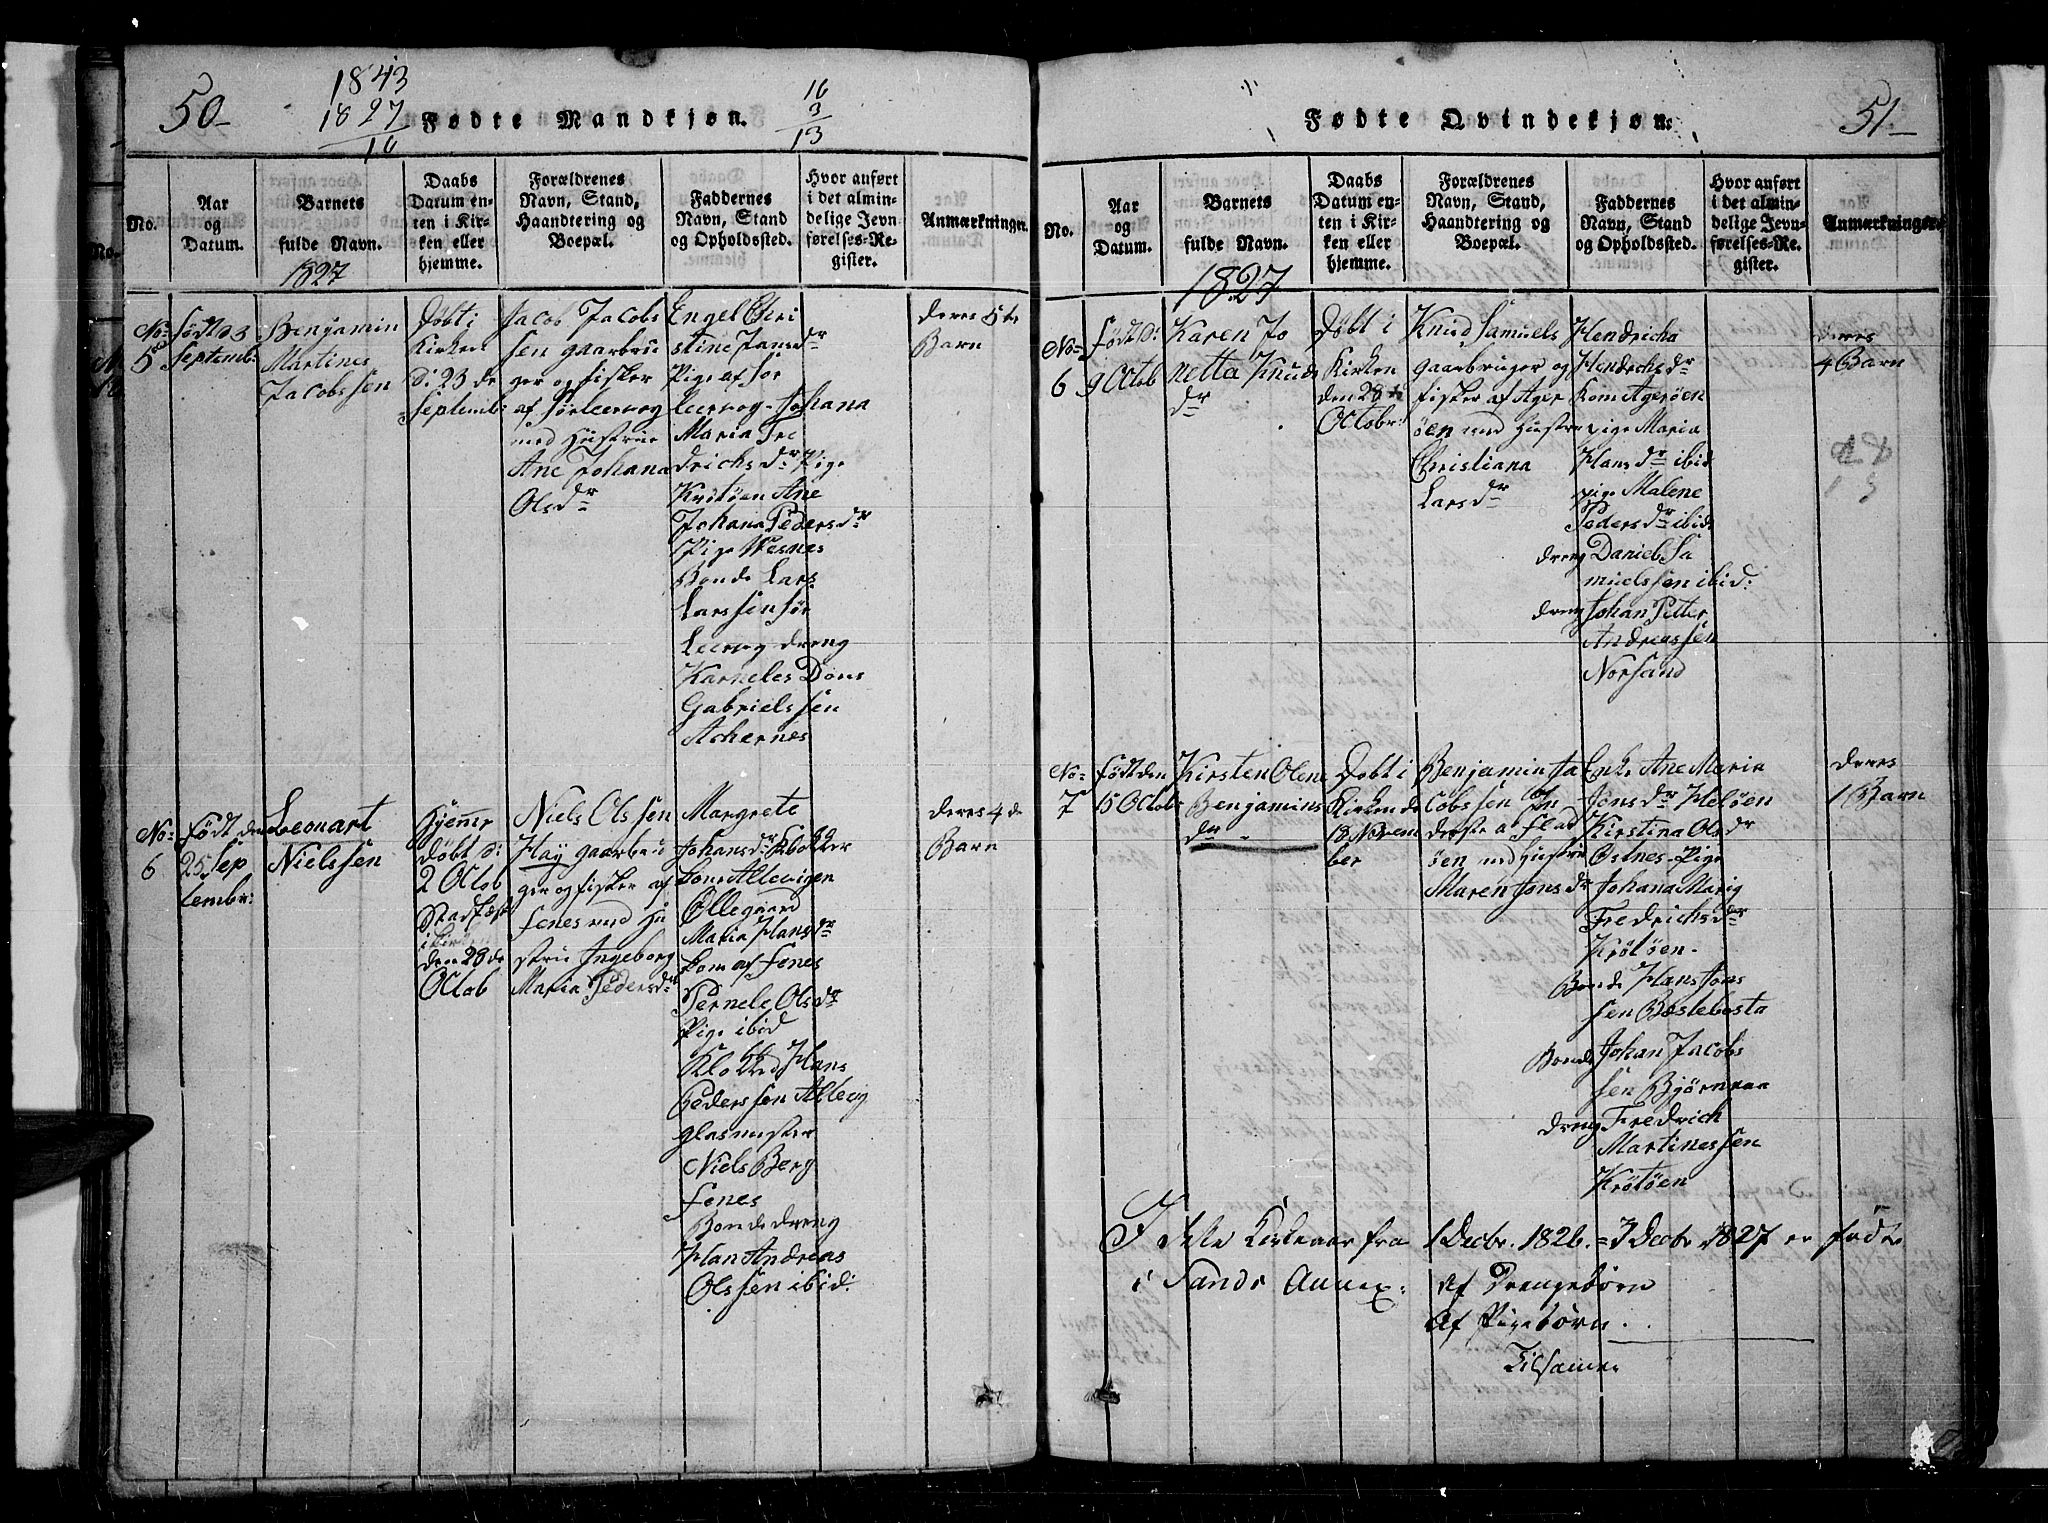 50-
1843
1827
16
Fødte Mandkjøn.
16
3
13
No.
Aar
og
Datum.
Barnets
fulde Navn.
Daabs
Datum en-
ten i Kir-
ken eller
hjemme.
Forældrenes
Navn, Stand,
Haandtering og
Boepæl.
Faddernes
Navn, Stand
og Opholdssted.
Hvor anført
i det almin-
delige Jevn-
førelses-Re-
gister.
Anmærkninger.
1827
No=
5
født d 3
Septemb:
Benjamin
Martines
Jacobssen
Døbt i
Kirken
d: 23 de
Septembr
Jacob Jacobs
sen gaarbru
ger og fisker
af Sørleervog
med Hustrue
Ane Johana
Olsdr
Engel Chri
stine Jansdr
Pige af Sør
leervog- Johana
Maria Fre
drichsdr Pige
Krotøen Ane
Johana Pedersdr
Pige Vesnes
Bonde Lars
Larssen Sør
Leervog dreng
Karneles Dons
Gabrielssen
Achernes
deres 5te
Barn
No=
6
født den
25 Sep
tembr:
Leonart
Nielssen
Hjemme
døbt d:
2 Octob
Stadfæst
i Kirken
den 28 de
Octob
Niels Olssen
Hay gaarbru
ger og fisker af
Fenes med Hu
strue Ingeborg
Maria Pedersdr
Margrete
Johansdr Klokker
kone Allevigen
Øllegaard
Maria Hansdr
kone af Fenes
Pernele Olsdr
Pige ibid
Klokker Hans
Pederssen Allevig
glasmester
Niels Berg
Fenes
Bonde dreng
Hans Andreas
Olssen ibid:
deres 4 de
Barn
Fødte Qvindekjøn.
51-
No.
Aar
og
Datum.
Barnets
fulde Navn.
Daabs
Datum en-
ten i Kir-
ken eller
hjemme.
Forældrenes
Navn, Stand,
Haandtering og
Boepæl.
Faddernes
Navn, Stand
og Opholdssted.
Hvor anført
i det almin-
delige Jevn-
førelses-Re-
gister.
Anmærkninger.
1827
No=
6
født d:
9 Octob
Karen Jo
netta Knuds
dr
Døbt i
Kirken
den 28 de
Octobr:
Knud Samuels
gaarbruger og
fisker af Ager
øen med Hustrue
Christiana
Larsdr
Hendricha
Hendrichsdr
Kone Agerøen
pige Maria
Hansdr ibid
pige Malene
Pedersdr ibid
dreng Daniel Sa
muelssen ibid:
dreng Johan Petter
Andreassen
Norsand
deres
4 Barn
No=
7
født den
15 Octobr
Kirsten Olene
Benjamins
dr
Døbt i
Kirken de
18 Novem
ber
Benjamin Ja
cobssen In
derste af Flad
øen med Hustrue
Maren Jonsdr
Enke Ane Maria
Jonsdr Heløen
Kirstina Olsdr
Ostnes- Pige
Johana Maria
Fredrichsdr
Krotøen-
Bonde Hans Jons
sen Bæslebosta
Bonde Johan Jacobs
sen Bjørnraa
dreng Fredrich
Martinessen
Krotøen
deres
1 Barn
I dette Kirkeaar fra 1 Decbr. 1826. = 1 Decbr 1827 er fødte
i Sands Annex: Af Drengebørn
Af Pigebørn .
Tilsamen